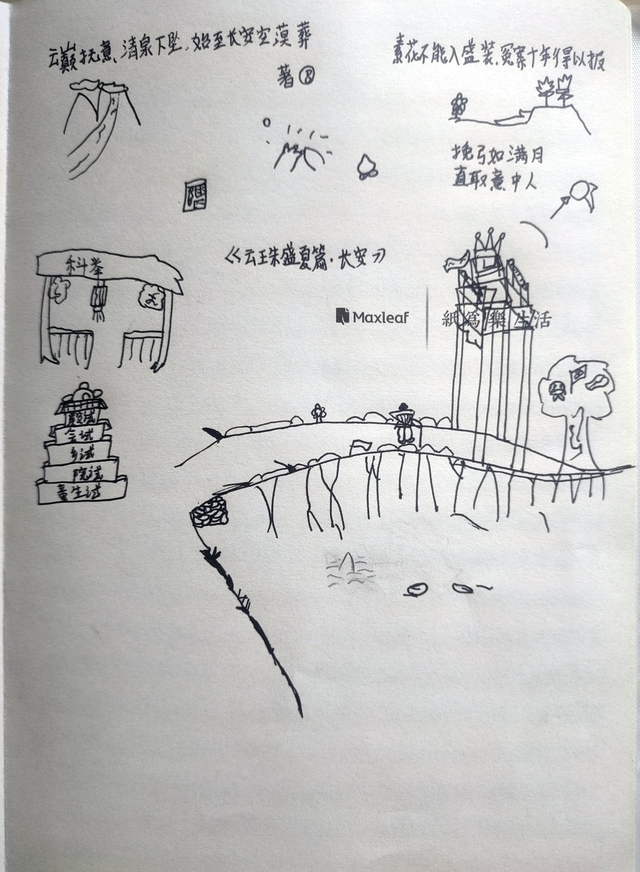 云巅抚意、清泉下坠,始至长安空漠葬
著
素花不能入盛装,冤案十年得以报
挽弓如满月
直取意中人
《云珠盛夏篇·长安》
科举
Maxleaf
紙為樂生活
殿试
会试
乡试
院试
童生试